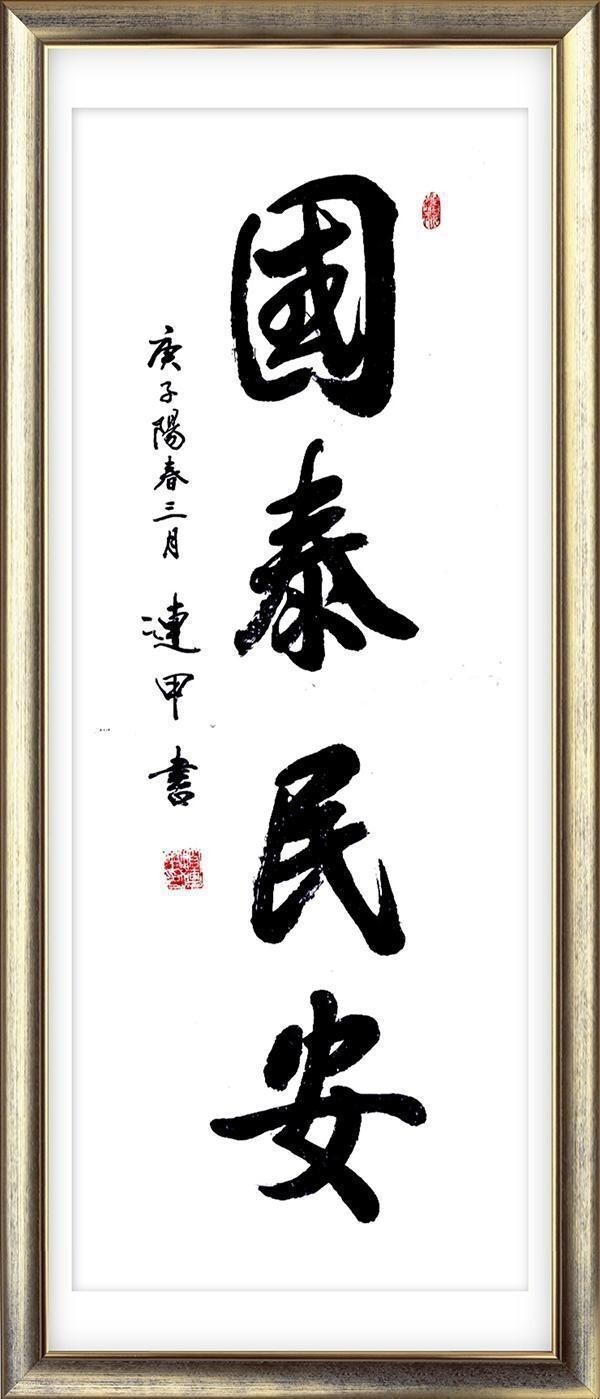 國泰民安
庚子陽春三月 漣甲書